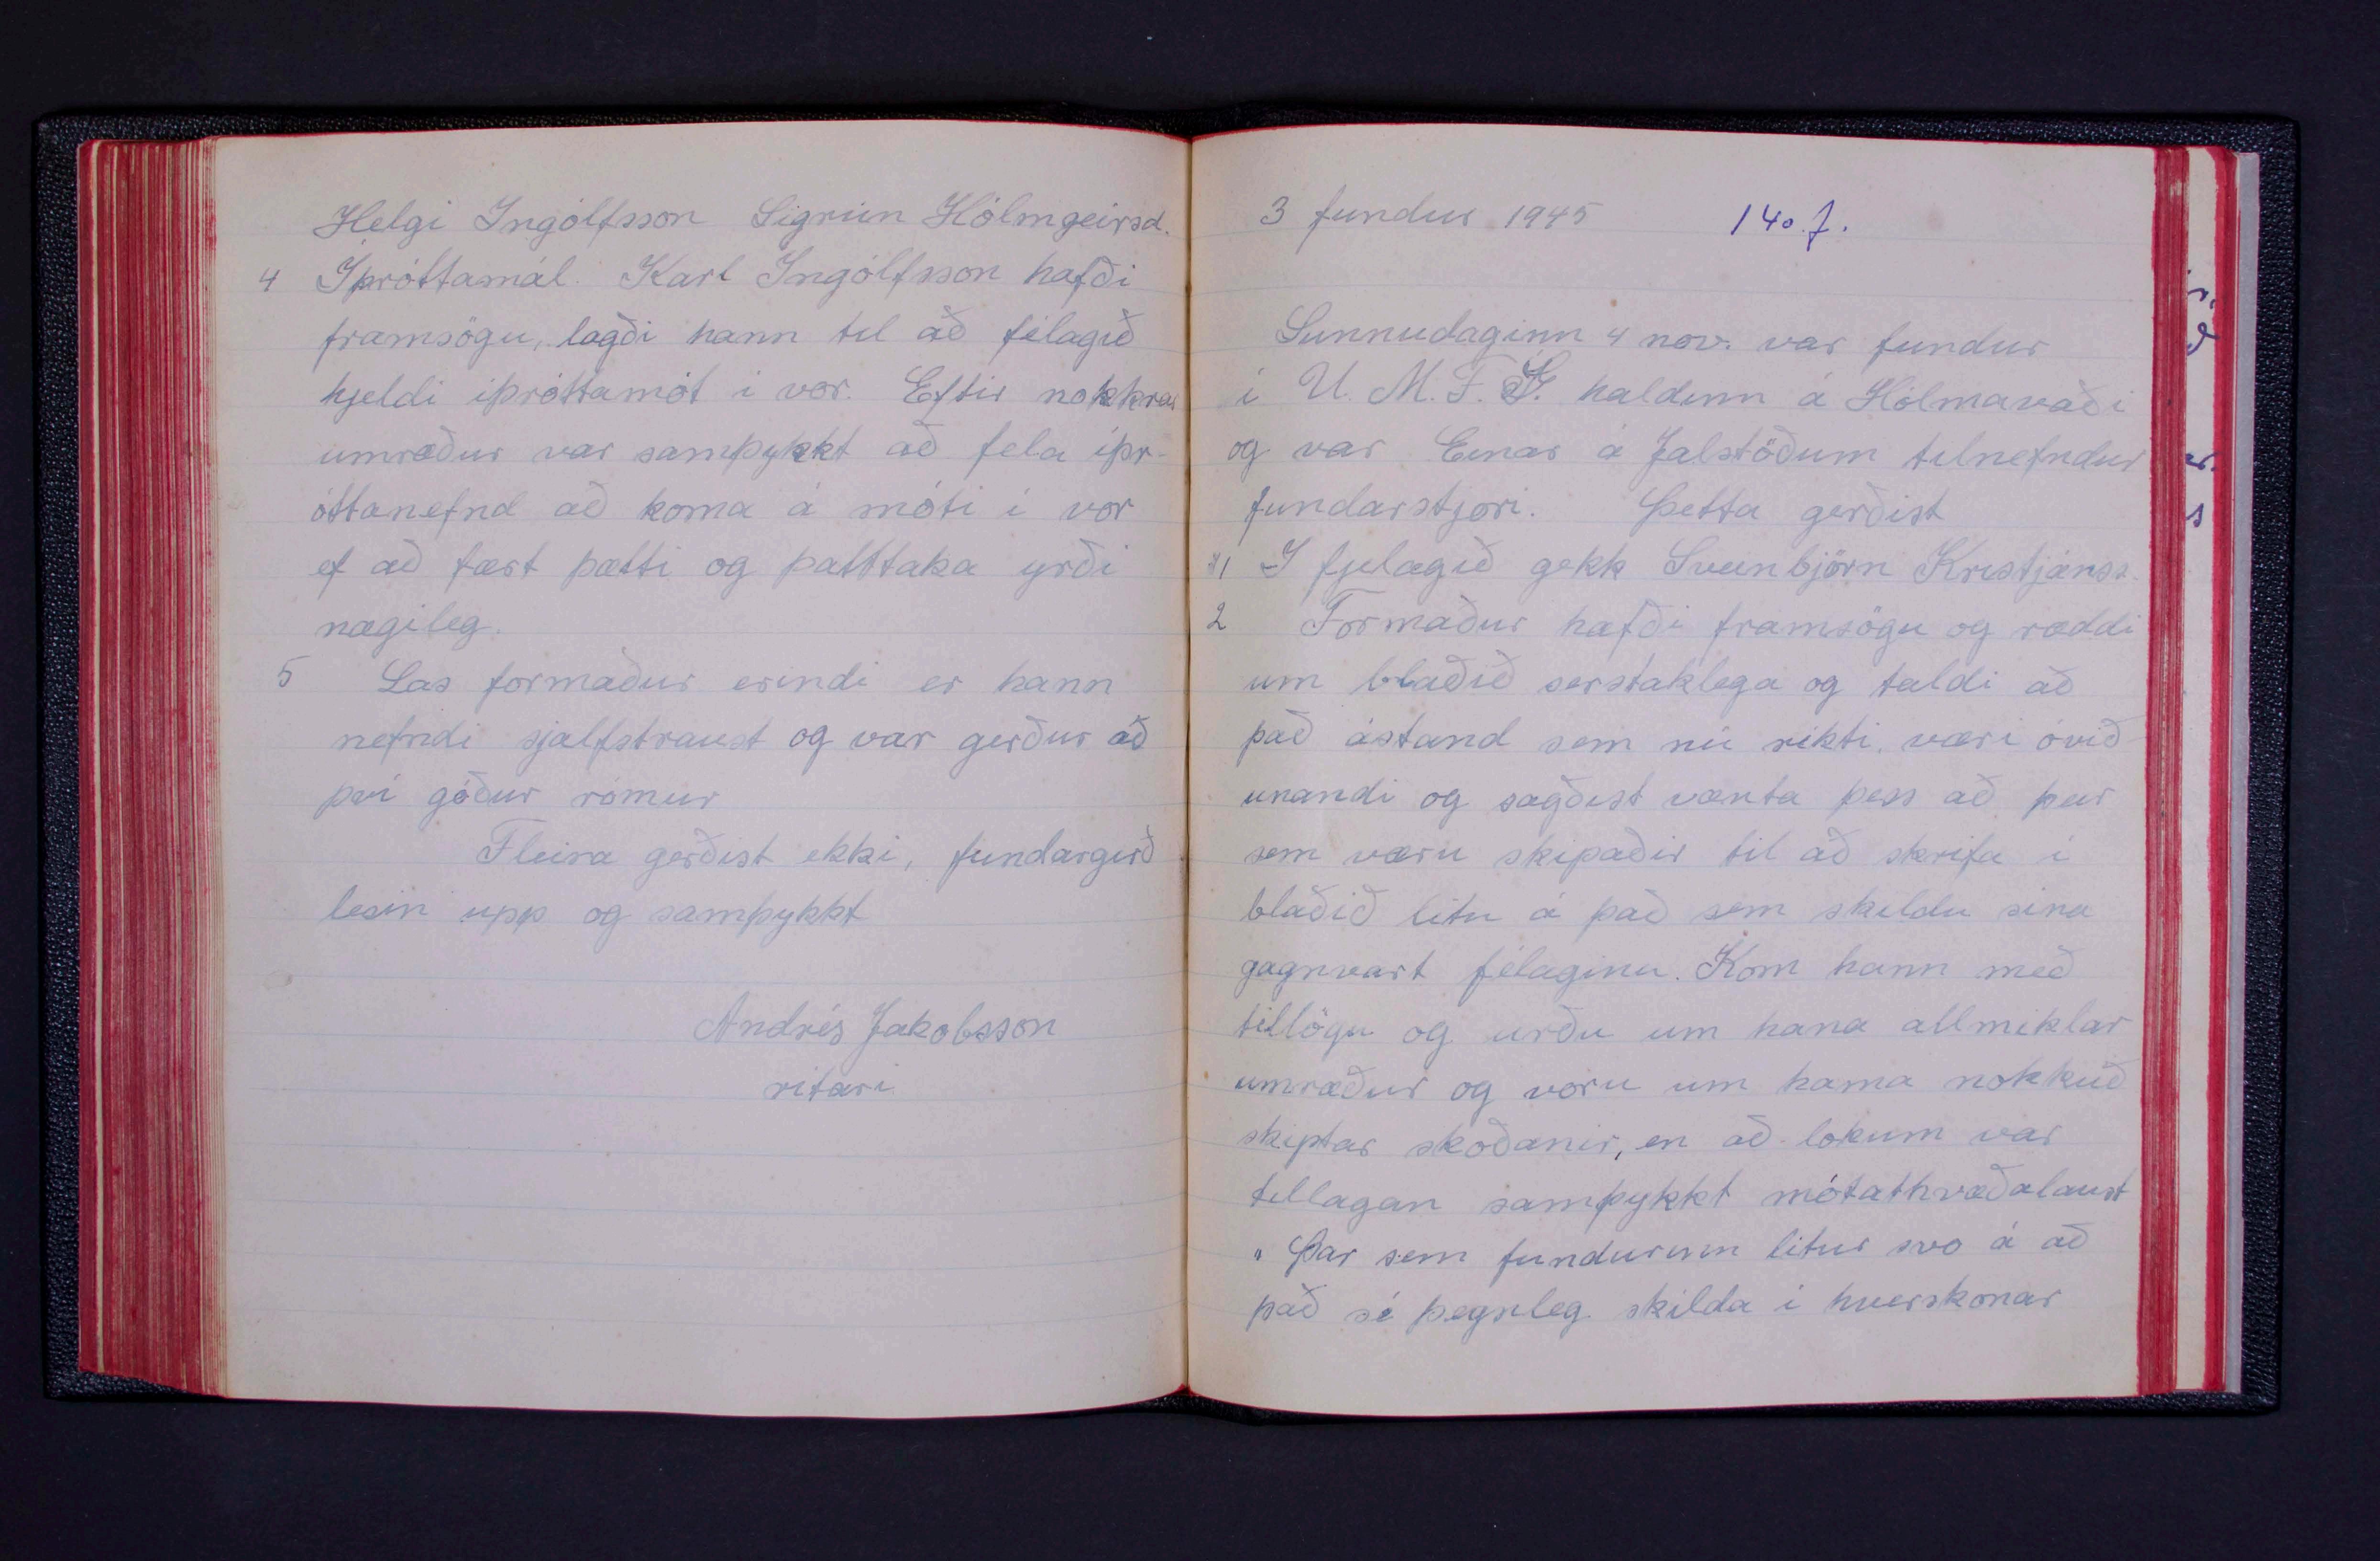 Helgi Ingólfsson Sigrún Hólmgeirsd.
4 Íþróttamál. Karl Ingólfsson hafði
framsögu, lagði hann til að félagið
hjeldi íþróttamót í vor. Eftir nokkrar
umræður var samþykkt að fela íþr-
óttanefnd að koma á móti í vor
ef að fært þætti og þatttaka yrði
nægileg.
5 Las formaður erindi er hann
nefndi sjalfstraust og var gerður að
því góður rómur
Fleira gerðist ekki, fundargerð
lesin upp og samþykkt
Andrés Jakobsson
ritari
3 fundur 1945 140. f.
Sunnudaginn 4 nov. var fundur
í U. M. F. haldinn á Hólmavaði
og var Einar á Jalstöðum tilnefndur
fundarstjori. Þetta gerðist
1 I fjelagið gekk Sveinbjörn Kristjánss.
2 Formaður hafði framsögu og ræddi
um blaðið serstaklega og taldi að
það ástand sem nú ríkti, væri óvið
unandi og sagðist vænta þess að þeir
sem væru skipaðir til að skrifa í
blaðið litu á það sem skildu sína
gagnvart félaginu. Kom hann með
tillögu og urðu um hana allmiklar
umræður og voru um hana nokkuð
skiptar skoðanir, en að lokum var
tillagan samþykkt mótathvæðalaust
" Þar sem fundurinn litur svo á að
það sé þegnleg skilda í hverskonar